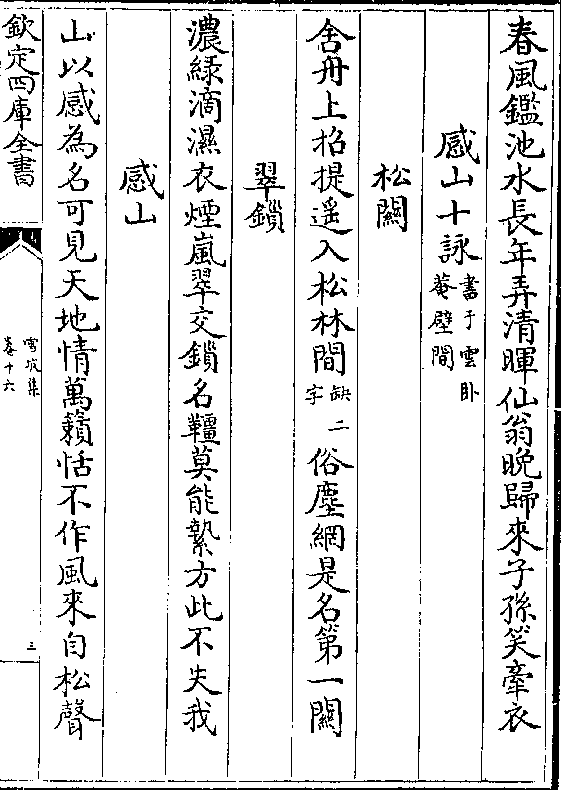 春風鑑池水長年弄清暉仙翁晩歸來子孫笑牽衣
感山十詠書于雲卧
菴壁間
松關
舍舟上招提遥入松林間缺二
字俗塵網是名第一關
翠鎖
濃綠滴濕衣煙嵐翠交鎖名韁莫能縶方此不失我
感山
山以感為名可見天地情萬籟恬不作風來自松聲
欽定四庫全書
雪坡集
卷十六
三